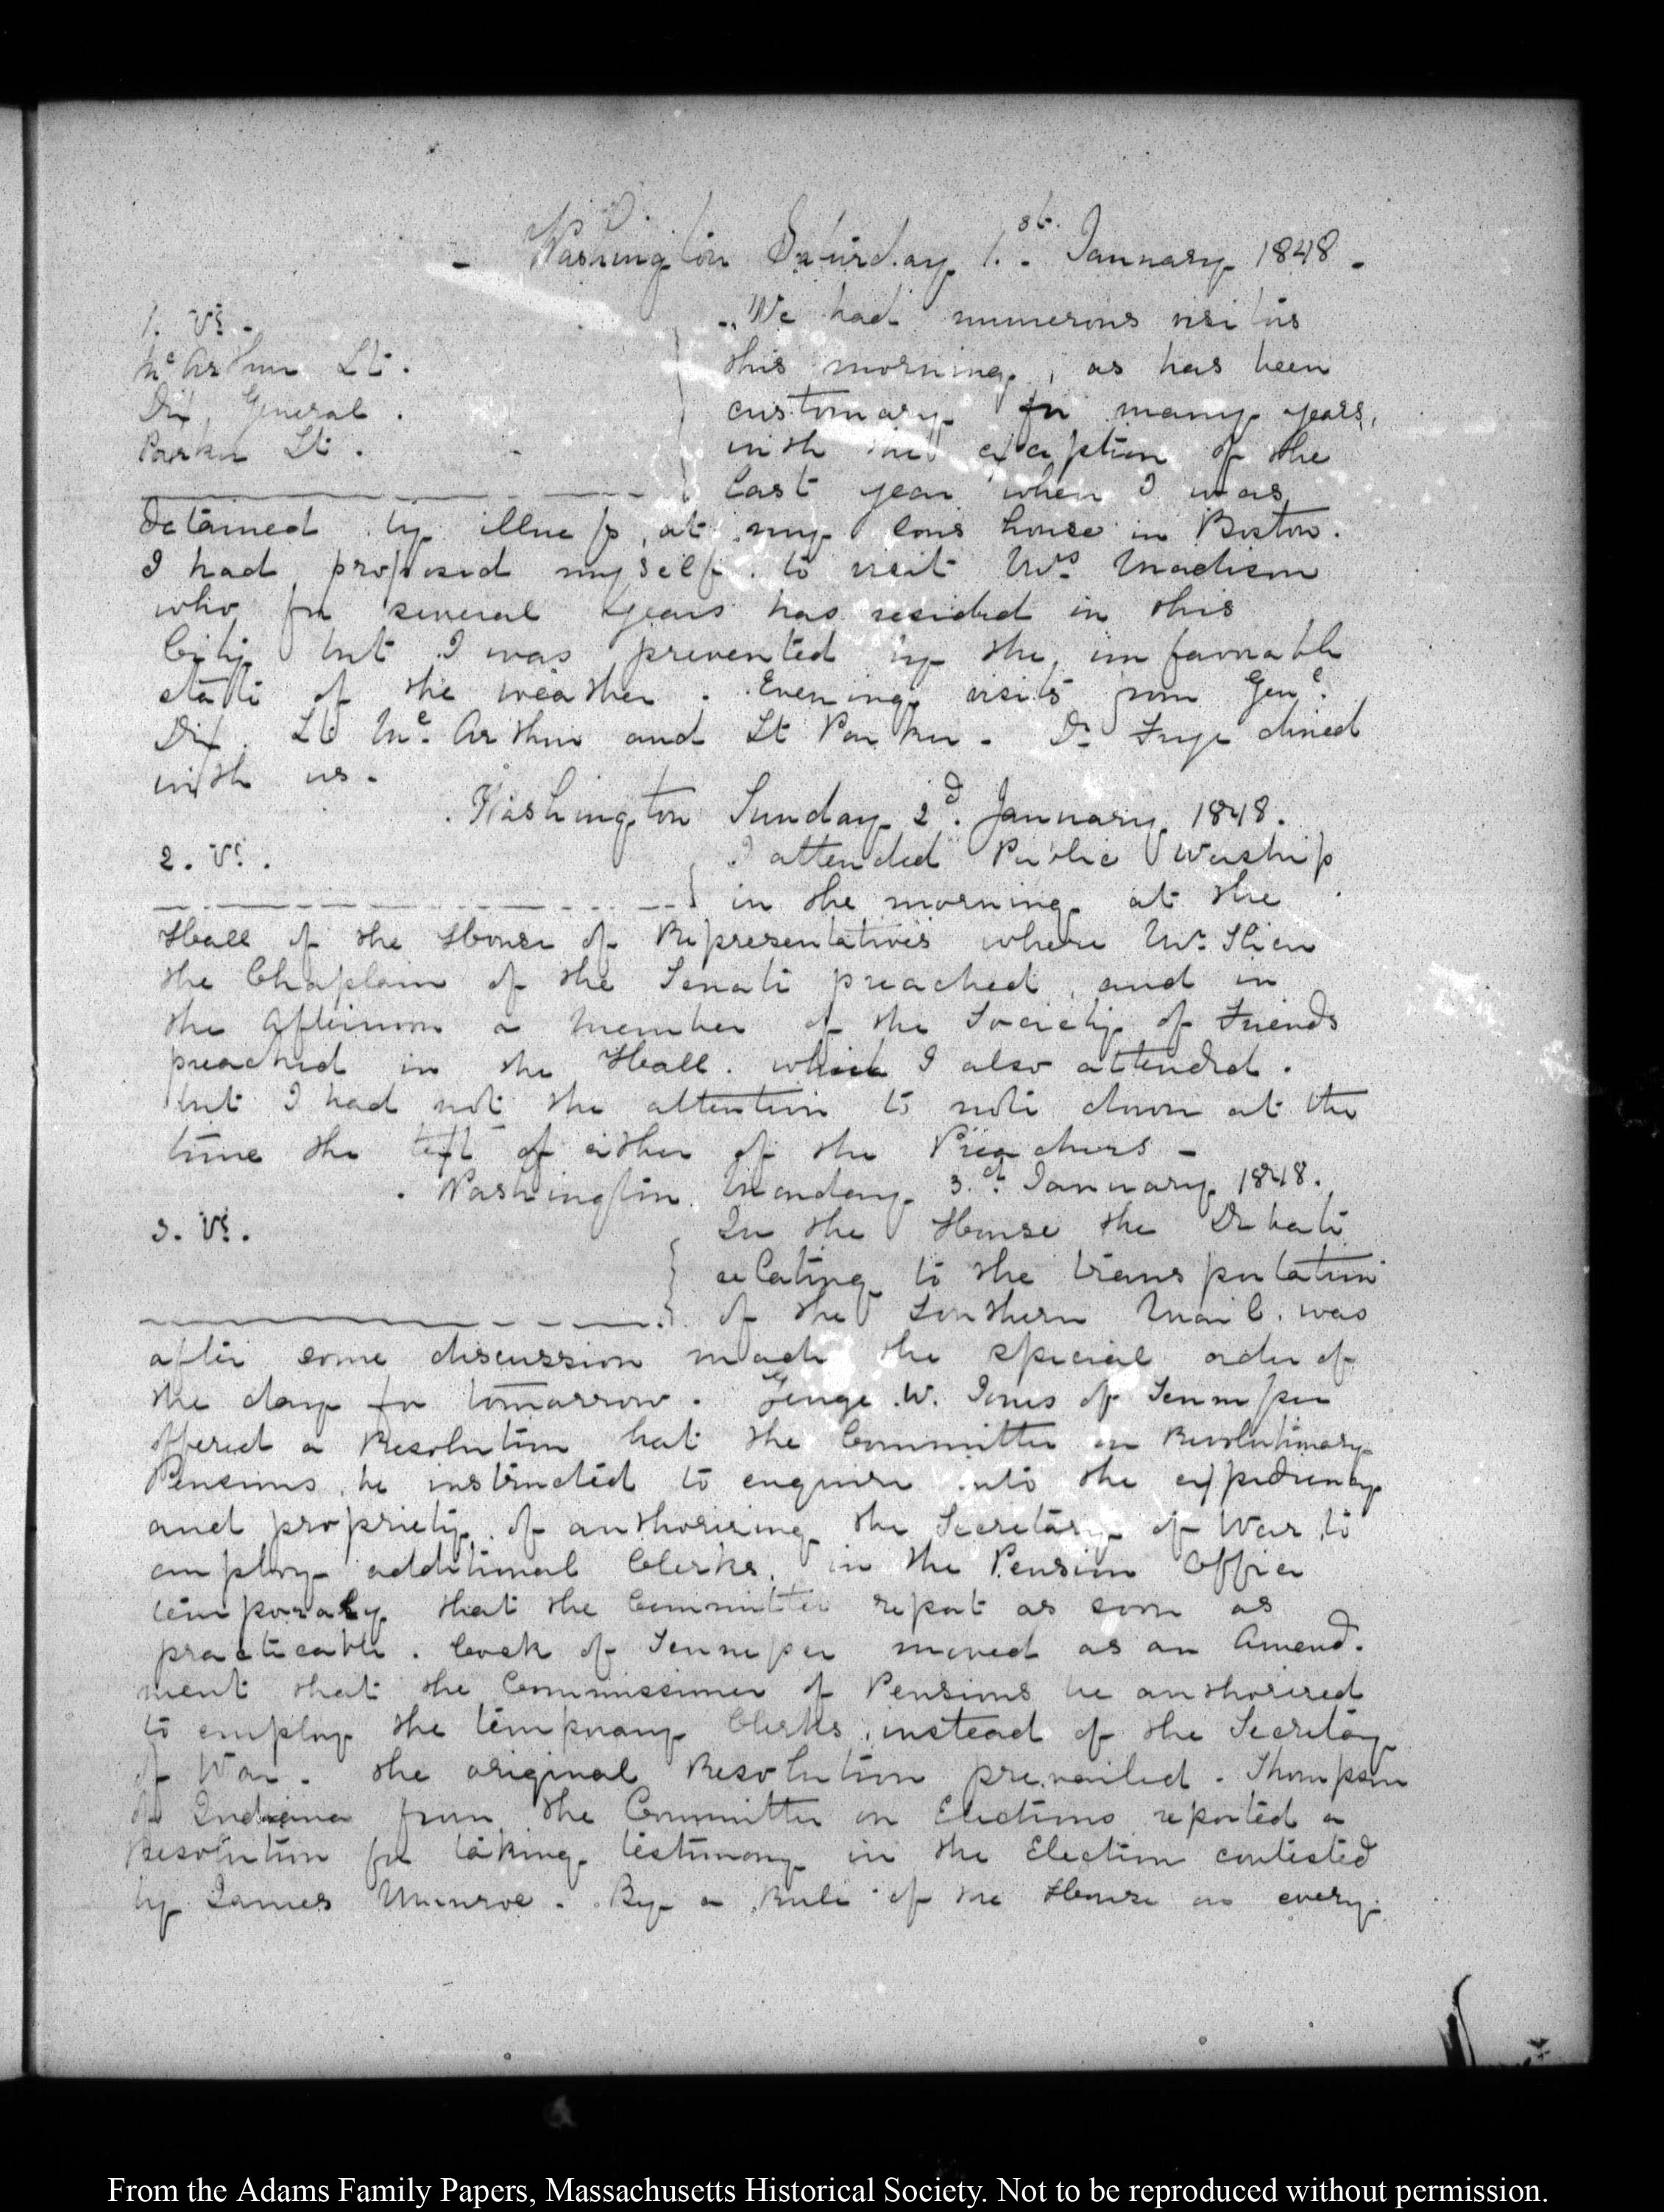 - Washington Saturday 1.st January 1848 -
1. VI.
McArthur Lt.
Dix General.
Parker Lt.
We had numerous visitors
this morning, as has been
customary for many years,
with the exception of the
last year when I was
detained by illness, at my sons house in Boston.
I had proposed myself to visit Mrs Madison
who for several years has resided in this
City but I was prevented by the unfavorable
state of the weather. Evening visits from Genl.
Dix. Lt Mc.Arthur and Lt Parker - Dr Frye dined
with us -
Washington Sunday 2d. January 1848.
2. VI.
I attended Public Worship
in the morning at the
Hall of the House of Representatives where Mr Slicer
the Chaplain of the Senate preached, and in
the afternoon a member of the Society of Friends
preached in the Hall. which I also attended.
but I had not the attention to note down at the
time the text of either of the Preachers -
Washington Monday 3d. January 1848.
3. VI.
In the House the Debate
relating to the transportation
of the Southern Mail. was
after some discussion made the special order of
the day for tomorrow. George W. Jones of Tennessee
offered a Resolution that the Committee on Revolutionary
Pensions be instructed to enquire into the expediency
and propriety of authorising the Secretary of War to
employ additional Clerks. in the Pension Office
temporaly that the Committee report as soon as
practicable. Cock of Tennessee moved as an Amend-
ment that the Commissioner of Pensions be authorised
to employ the temporary Clerks, instead of the Secretary
of War. the original Resolution prevailed. Thompson
of Indiana from the Committee on Elections reported a
Resolution for taking testimony in the Election contested
by James Munroe. By a Rule of the House on every
From the Adams Family Papers, Massachusetts Historical Society. Not to be reproduced without permission.